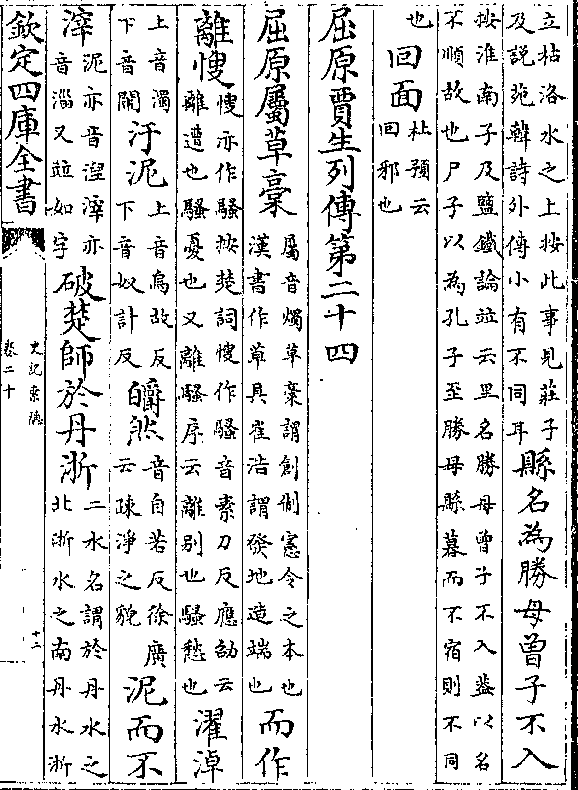 立枯洛水之上按此事見莊子
及説苑韓詩外傳小有不同耳
縣名為勝母曾子不入
按淮南子及鹽鐵論竝云里名勝母曾子不入葢以名
不順故也尸子以為孔子至勝母縣暮而不宿則不同
也
回面
杜預云
回邪也
屈原賈生列傳第二十四
屈原屬草稾
屬音燭草稾謂創制憲令之本也
漢書作草具崔浩謂發地造端也
而作
離慅
慅亦作騷按楚詞慅作騷音素刀反應劭云
離遭也騷憂也又離騷序云離别也騷愁也
濯淖
上音濁
下音閙
汙泥
上音烏故反
下音奴計反
皭然
音自若反徐廣
云疎淨之貌
泥而不
滓
泥亦音湼滓亦
音淄又竝如字
破楚師於丹淅
二水名謂於丹水之
北淅水之南丹水淅
欽定四庫全書
史記索隱
卷二十
十二